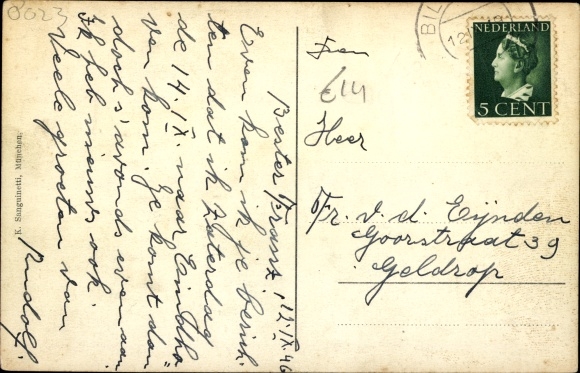 8023
Bester Franz, 12.IX.46
Even kom ik je berich-
ten dat ik Zaterdag
de 14.IX. naar Eindho
ven kom. Je komt dan
doch s'avonds even aan.
Ik heb nieuws ook.
Veele groeten van
Rudolf.
K. Sanguinetti, München.
BIL
12
NEDERLAND
5 CENT
€14
Heer
Fr. v. d. Eijnden
Goorstraat 39
Geldrop